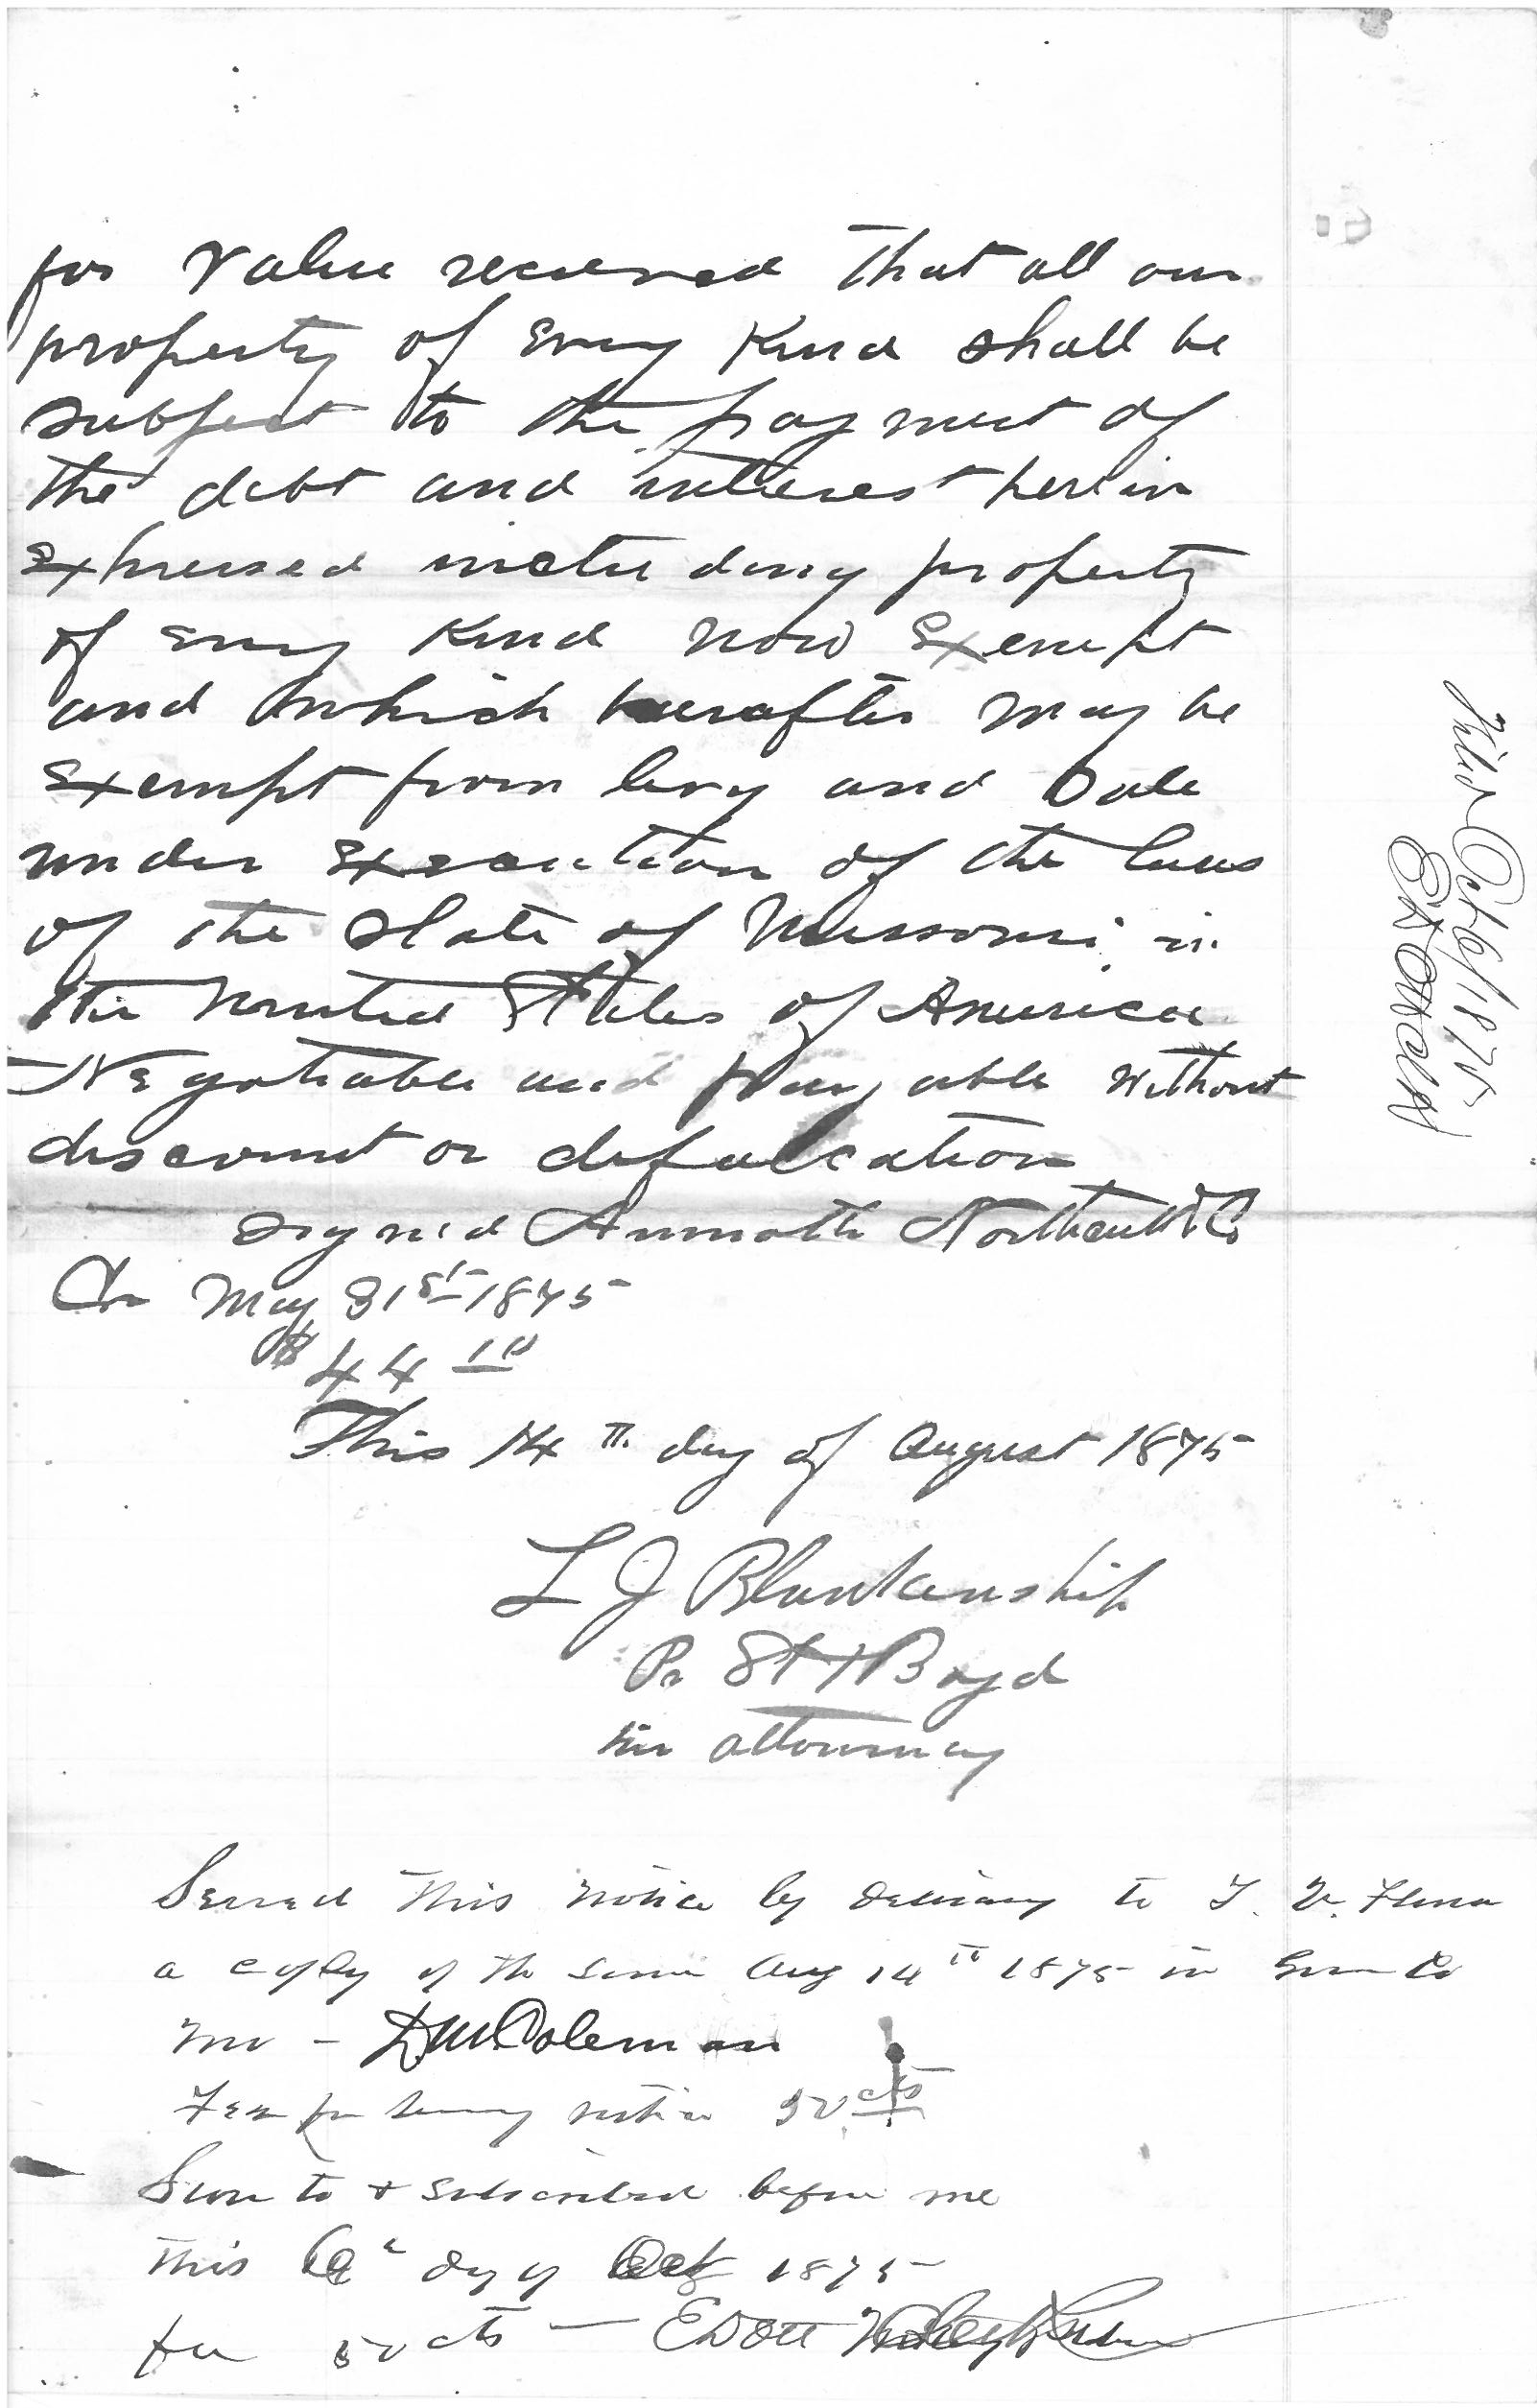 for value received that all our
property of Every Kind shall be
subject to the payment of
the debt and interest herein
Expressed including property
of Every Kind now Exempt
and which hereafter may be
Exempt from levy and Sale
under Execution of the laws
of the State of Missouri in
the United States of America
Negotiable and payable without
discount or defalcation
signed Northcutt & Co
Cr May 31st 1875
$44 10
This 14th day of August 1875
L J Blankenship
Pr S H Boyd
his attorney
Served this notice by delivering to
a copy of the same Aug 14th 1875 in Green Co
Mo - Coleman
Fee for serving notice 50 cts
Sworn to & subscribed before me
this day of Oct 1875
fee 50 cts —
Filed Oct 6/1875